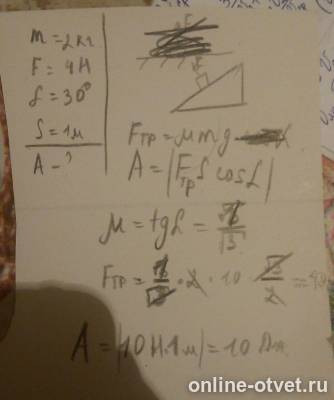 m = 2 кг
F = 4 Н
α = 30°
S = 1 м
A - ?
F
Fтр = μmg
A = |Fтр S cosα|
μ = tgα = 1/√3
Fтр = 1/√3 · 2 · 10 · √3/2 =
A = |10 Н · 1 м| = 10 Дж
online-otvet.ru